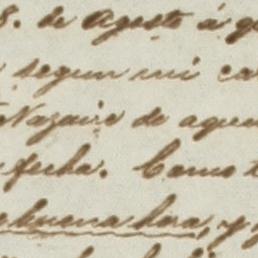 8. de Agosto á
segun mi ca
Nazaire de ague
fecha. Como t
buena hora, y